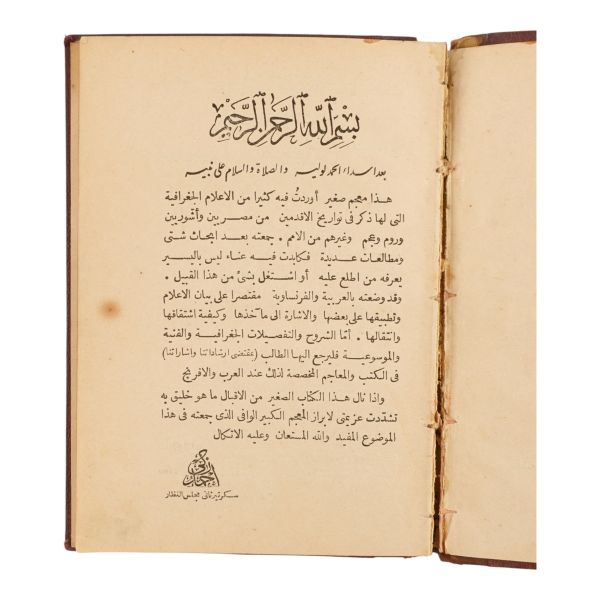 بسم الله الرحمن الرحيم
بعد اسداء الحمد لوليه والصلاة والسلام على نبيه
هذا معجم صغير أوردتُ فيه كثيرا من الاعلام الجغرافية
التى لها ذكر فى تواريخ الاقدمين من مصريين وأشوريين
وروم وعجم وغيرهم من الامم . جمعته بعد ابحاث شتى
ومطالعات عديدة فكابدت فيه عناء ليس باليسير
يعرفه من اطلع عليه أو اشتغل بشئ من هذا القبيل .
وقد وضعته بالعربية والفرنساوية مقتصرا على بيان الاعلام
وتطبيقها على بعضها والاشارة الى مآخذها وكيفية اشتقاقها
وانتقالها . أمّا الشروح والتفصيلات الجغرافية والفنية
والموسوعية فليرجع اليها الطالب (بمقتضى ارشاداتنا واشاراتنا)
فى الكتب والمعاجم المخصصة لذلك عند العرب والافرنج
واذا نال هذا الكتاب الصغير من الاقبال ما هو خليق به
تشدّدت عزيمتى لابراز المعجم الكبير الوافى الذى جمعته فى هذا
الموضوع المفيد والله المستعان وعليه الاتكال
احمد زكى
سكرتير ثانى مجلس النظار